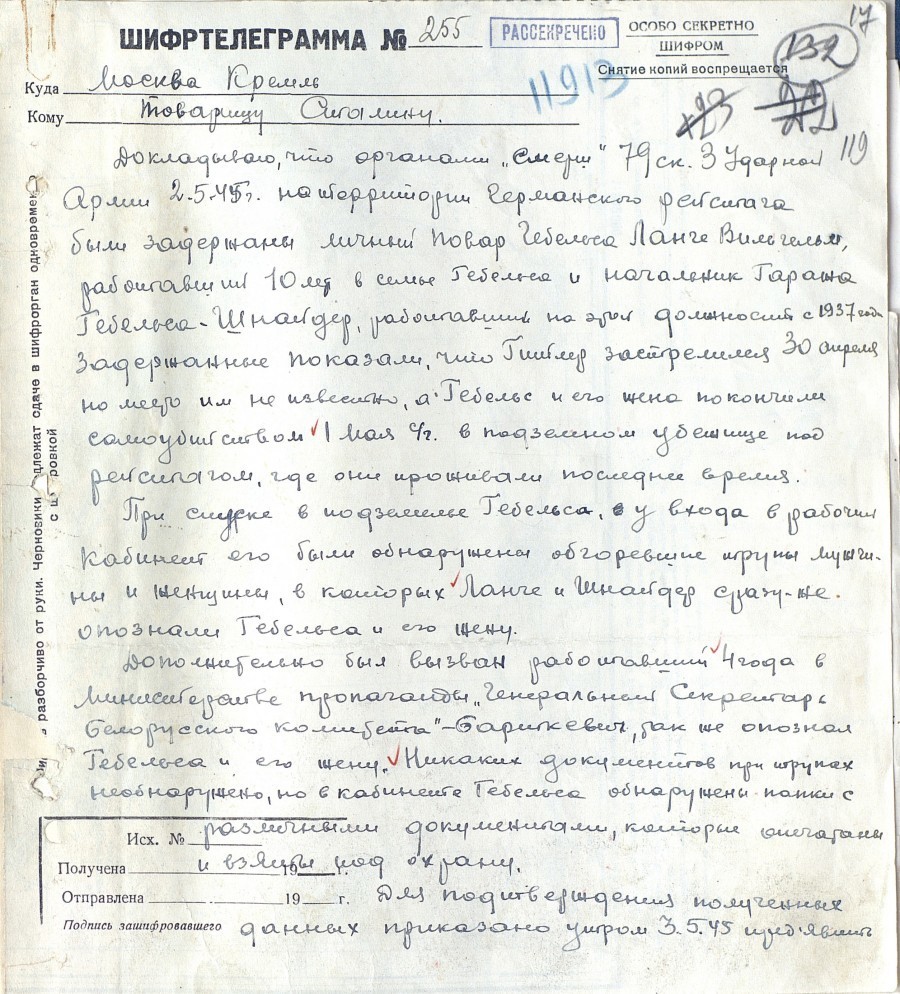 17
ШИФРТЕЛЕГРАММА № 255
РАССЕКРЕЧЕНО
ОСОБО СЕКРЕТНО
ШИФРОМ
Снятие копий воспрещается
132
11913
Куда Москва Кремль
Кому Товарищу Сталину.
119
Докладываю, что органами „Смерш" 79 ск. 3 Ударной
Армии 2.5.45г. на территории Германского рейхстага
были задержаны личный повар Гебельса Ланге Вильгельм,
работавший 10 лет в семье Гебельса и начальник Гаража
Гебельса - Шнайдер, работавший на этой должности с 1937 года
Задержанные показали, что Гитлер застрелился 30 апреля
но место им не известно, а Гебельс и его жена покончили
самоубийством 1 мая с/г. в подземном убежище под
рейхстагом, где они проживали последнее время.
При спуске в подземелье Гебельса, у входа в рабочий
кабинет его были обнаружены обгоревшие трупы мужчи-
ны и женщины, в которых Ланге и Шнайдер сразу-же
опознали Гебельса и его жену.
Дополнительно был вызван работавший 4 года в
Министерстве пропаганды „Генеральный Секретарь
Белорусского комитета" - Бариткевич, так же опознал
Гебельса и его жену. Никаких документов при трупах
необнаружено, но в кабинете Гебельса обнаружены папки с
различными документами, которые опечатаны
и взяты под охрану.
Для подтверждения полученных
данных приказано утром 3.5.45 предъявить
Исх. №
Получена 19 г.
Отправлена 19 г.
Подпись зашифровавшего
разборчиво от руки. Черновики длежат сдаче в шифрорган одновремен
с ш ровкой